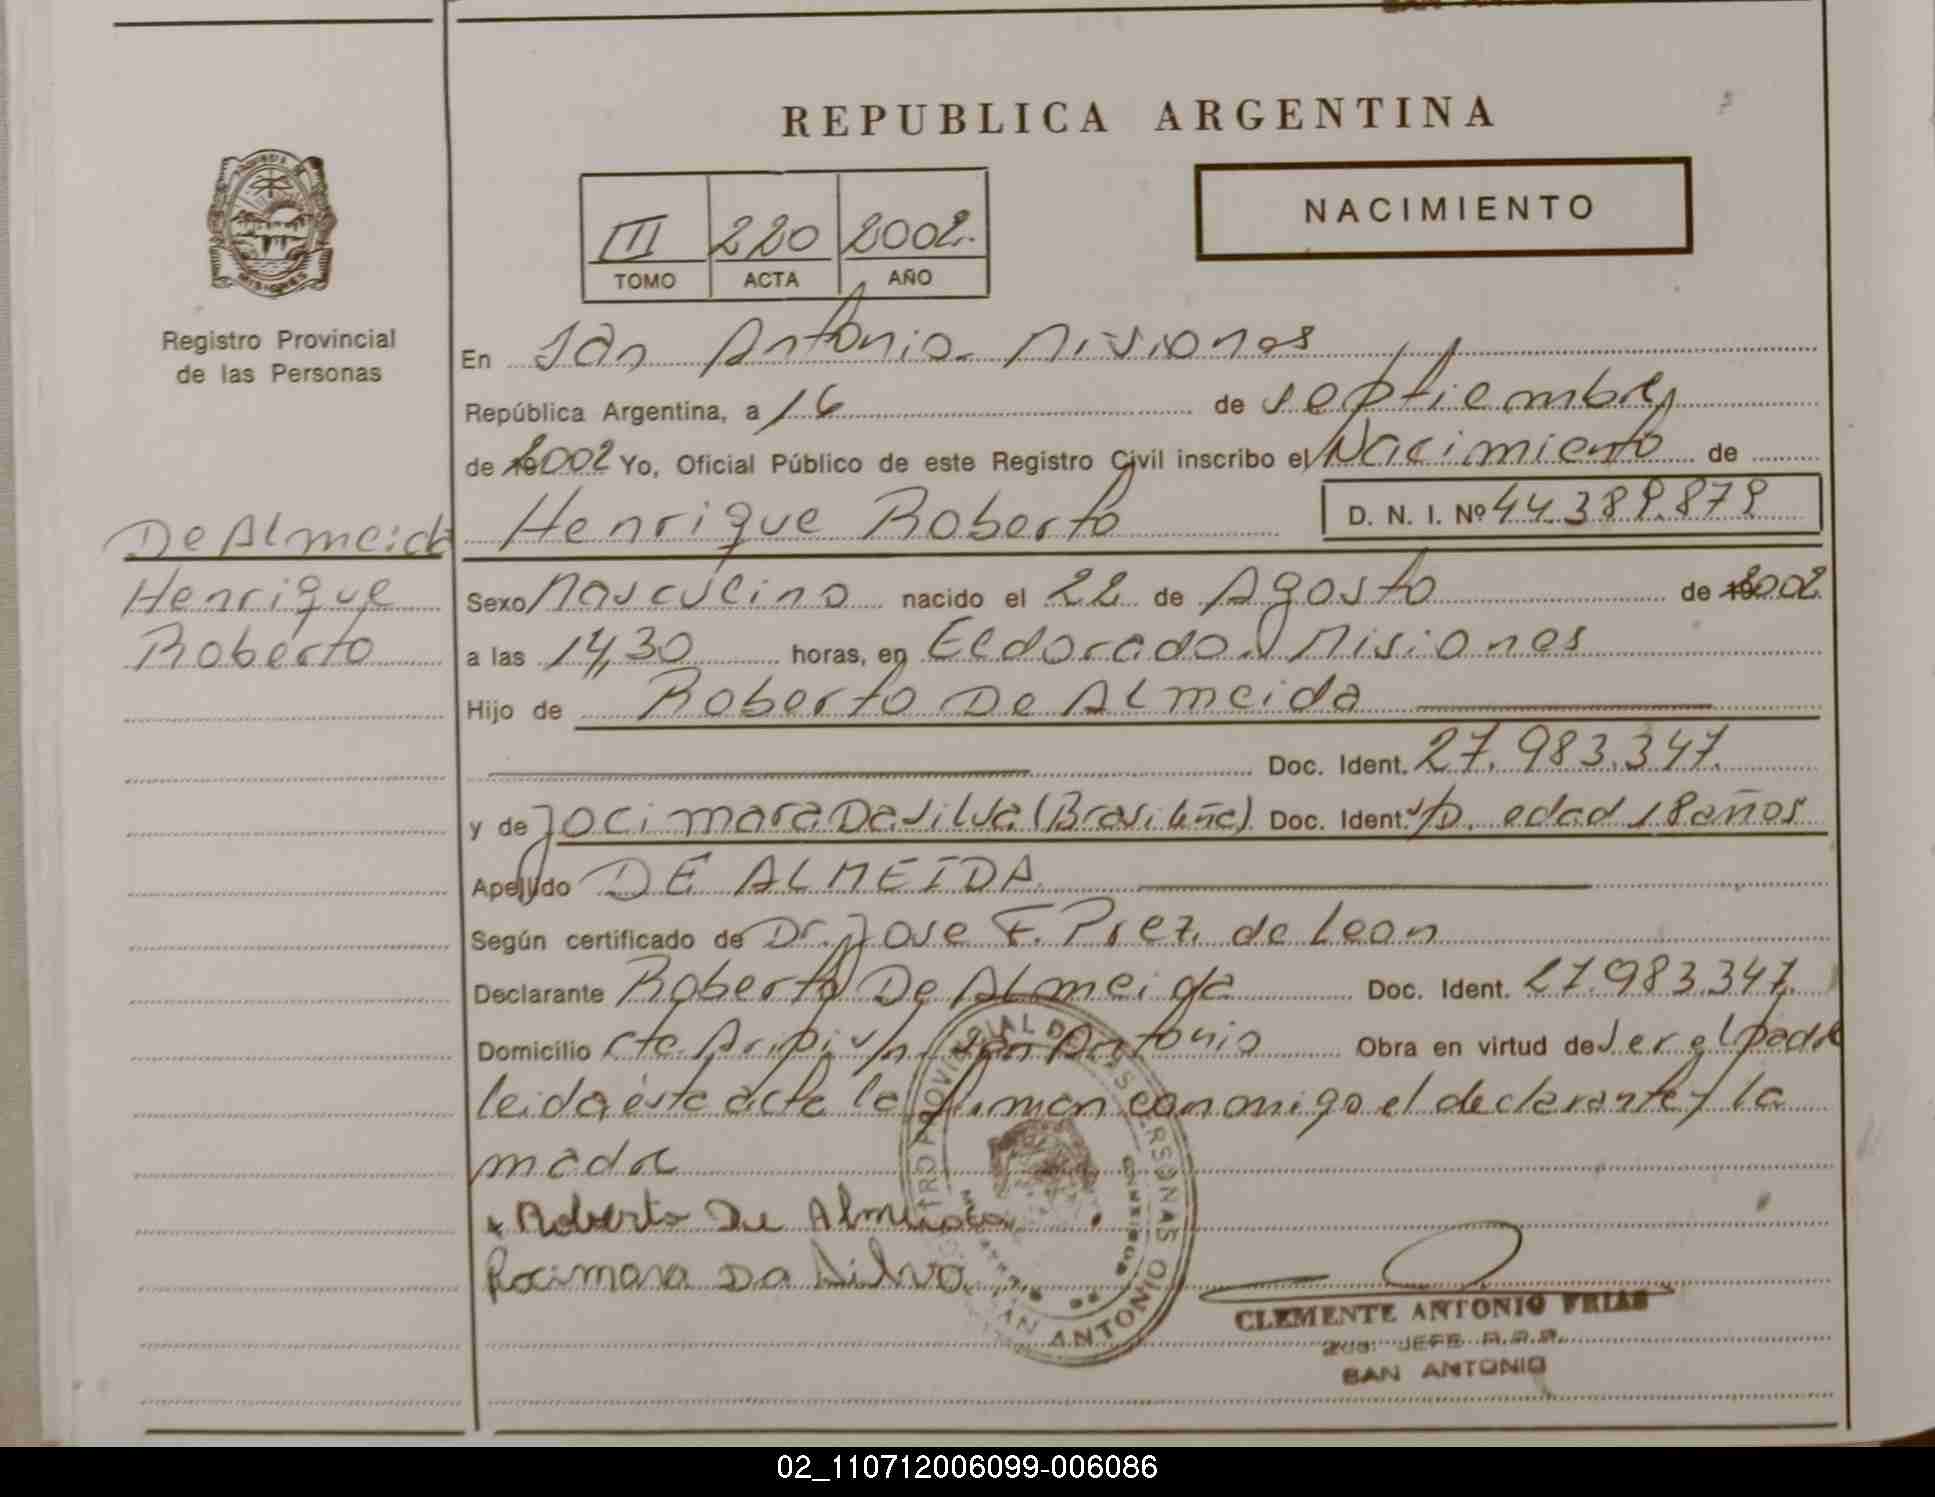 REPUBLICA ARGENTINA
NACIMIENTO
III 220 2002.
TOMO ACTA AÑO
MISIONES
Registro Provincial
de las Personas
En San Antonio Misiones
República Argentina, a 16 de septiembre
de 2002 Yo, Oficial Público de este Registro Civil inscribo el Nacimiento de
Henrique Roberto D. N. I. Nº 44.389.879
De Almeida
Henrique
Roberto
Sexo Masculino nacido el 22 de Agosto de 2002
a las 14,30 horas, en Eldorado Misiones
Hijo de Roberto De Almeida
Doc. Ident. 27.983.347.
y de Jocimara Da Silva (Brasileña) Doc. Ident. s/D. edad 18 años
Apellido DE ALMEIDA
Según certificado de Dr. Jose F. Prez. de Leon
Declarante Roberto De Almeida Doc. Ident. 27.983.347.
Domicilio San Antonio Obra en virtud de ser el padre
leida ésta acta la firman conmigo el declarante y la
madre
Roberto De Almeida
Da Silva
SAN ANTONIO
CLEMENTE ANTONIO FRIAS
JEFE
SAN ANTONIO
02_110712006099-006086